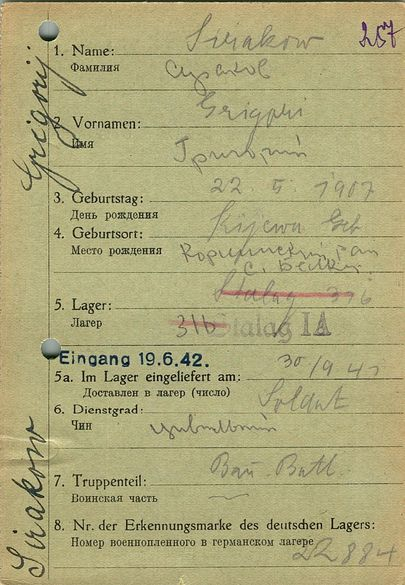 257
1. Name: Sirakow
Фамилия Сураков
2. Vornamen: Grigori
Имя Григорий
3. Geburtstag: 22. 5. 1907
День рождения
4. Geburtsort: Kijewa Geb
Место рождения
С.
Stalag 316
5. Lager: Stalag IA
Лагерь 316
Eingang 19.6.42.
5a. Im Lager eingeliefert am: 30/9 41
Доставлен в лагерь (число)
6. Dienstgrad: Soldat
Чин
7. Truppenteil: Bau. Batl.
Воинская часть
8. Nr. der Erkennungsmarke des deutschen Lagers:
Номер военнопленного в германском лагере
22884
Sirakow Grigorij